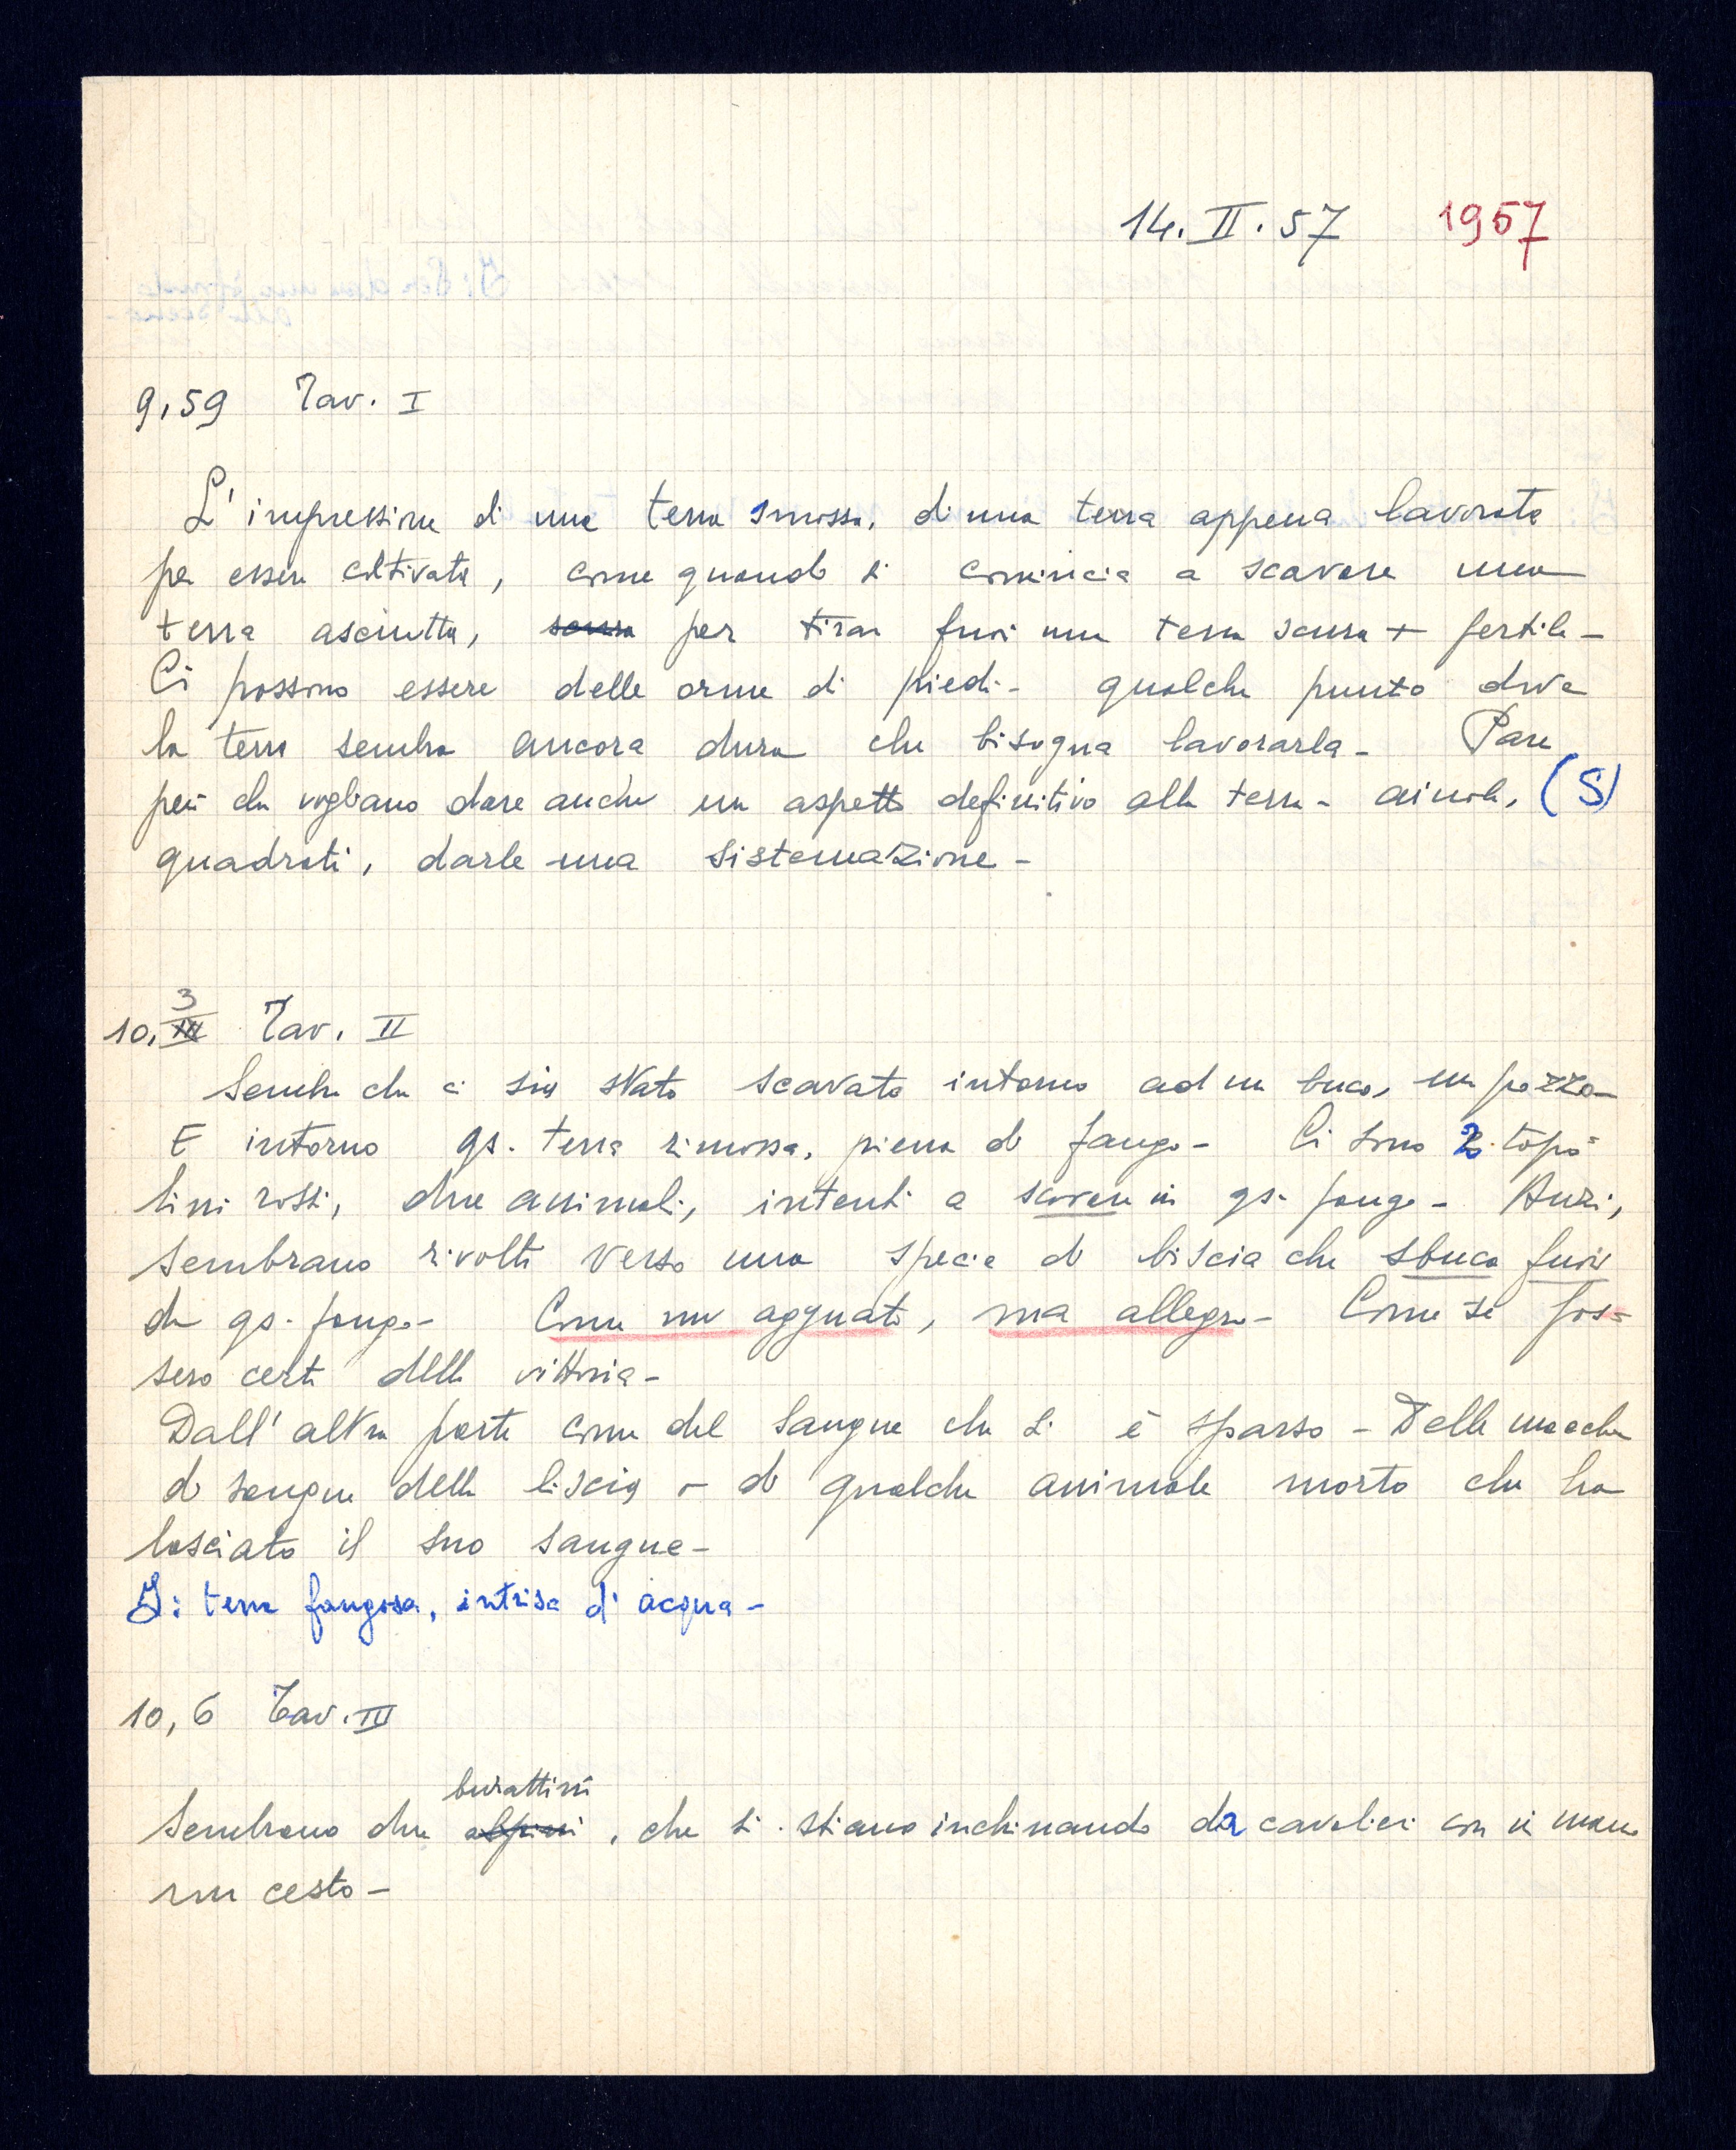 14. II. 57 1957
9,59 Tav. I
L'impressione di una terra smossa, di una terra appena lavorata
per essere coltivata, come quando si comincia a scavare una
terra asciutta, scura per tirar fuori una terra scura + fertile -
Ci possono essere delle orme di piedi - qualche punto dove
la terra sembra ancora dura che bisogna lavorarla - Pare
però che vogliano dare anche un aspetto definitivo alla terra - aiuole, (S)
quadrati, darle una sistemazione -
3
10, III Tav. II
Sembra che ci sia stato scavato intorno ad un buco, un pozzo -
E intorno qs. terra rimossa, piena di fango - Ci sono 2 topo
lini rossi, due animali, intenti a scavare in qs. fango - Anzi,
sembrano rivolti verso una specie di biscia che sbuca fuori
da qs. fango - Come un agguato, ma allegro - Come se fos=
sero certi della vittoria -
Dall'altra parte come del sangue che si è sparso - Delle macchie
di sangue della biscia o di qualche animale morto che ha
lasciato il suo sangue -
I: terra fangosa, intrisa di acqua -
10,6 Tav. III
burattini
Sembrano due alpini, che si stiano inchinando da cavalieri con in mano
un cesto -